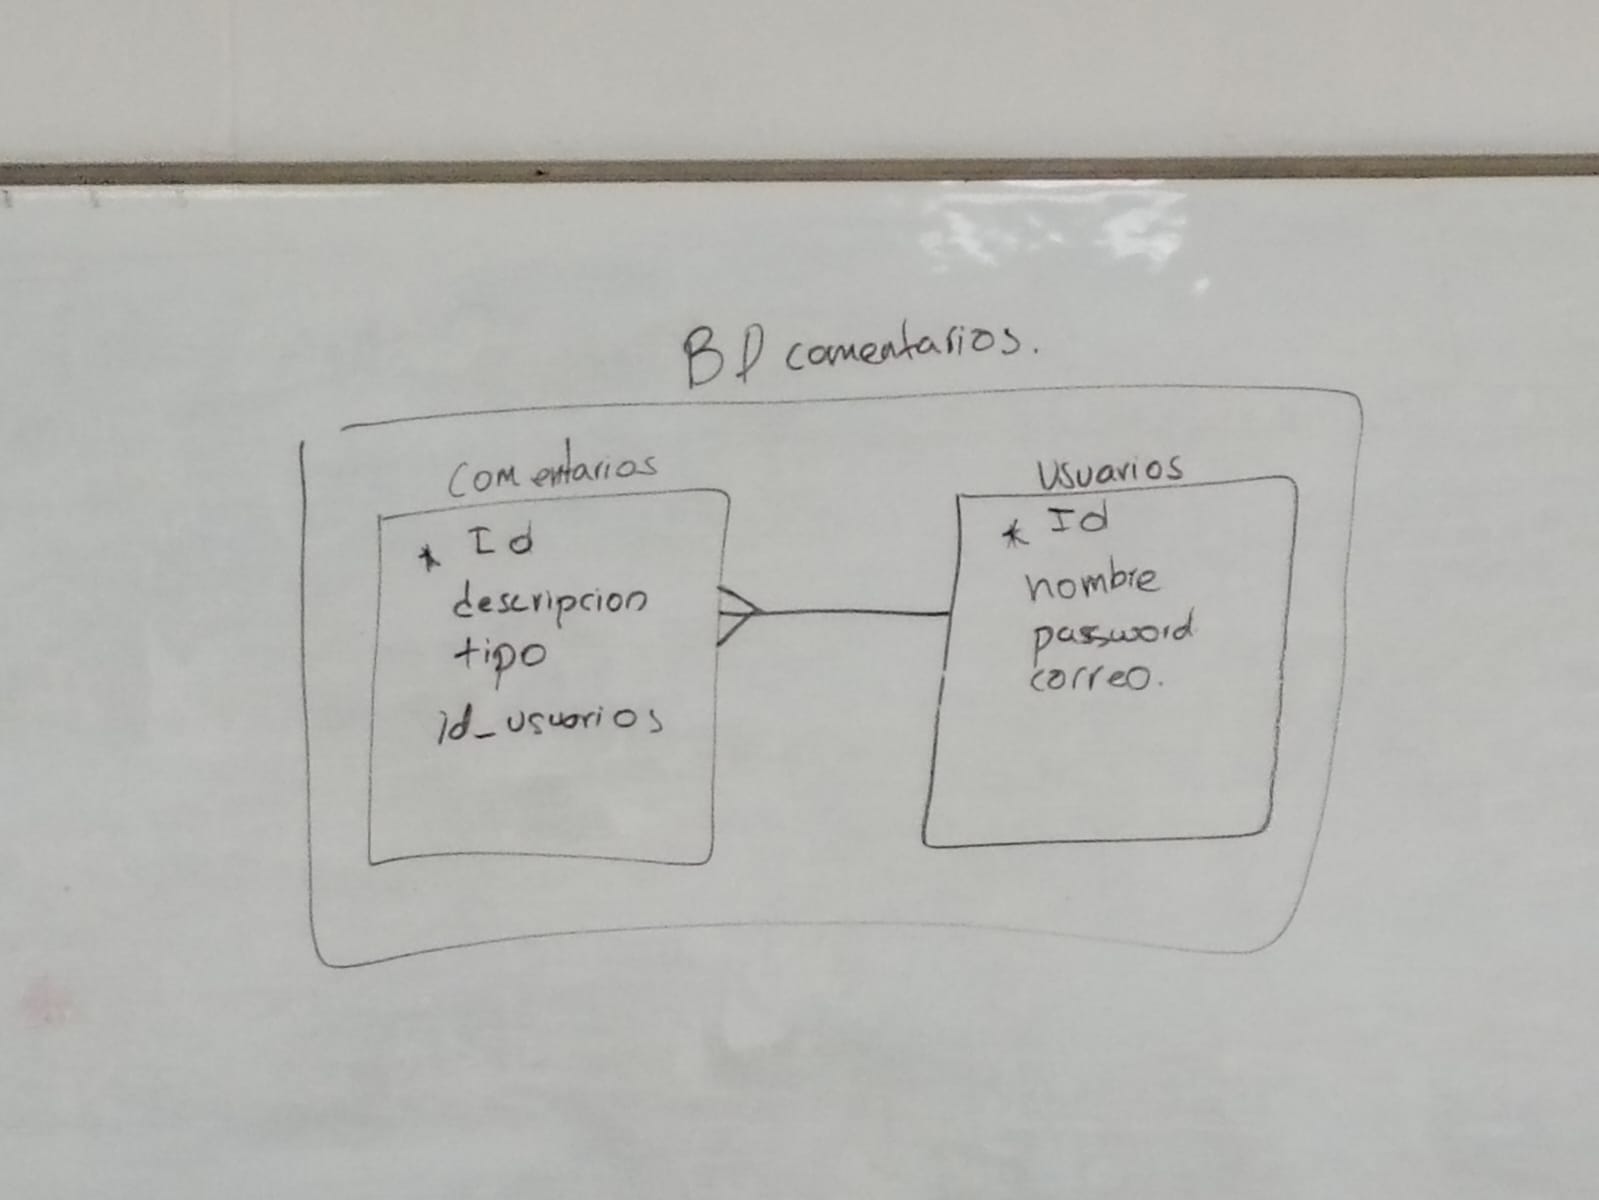 BD comentarios.
Comentarios
* Id
descripcion
tipo
id_usuarios
Usuarios
* Id
nombre
password
correo.